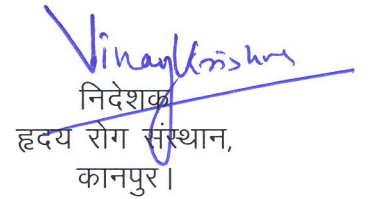 Vinay Krishna
निदेशक
हृदय रोग संस्थान,
कानपुर।